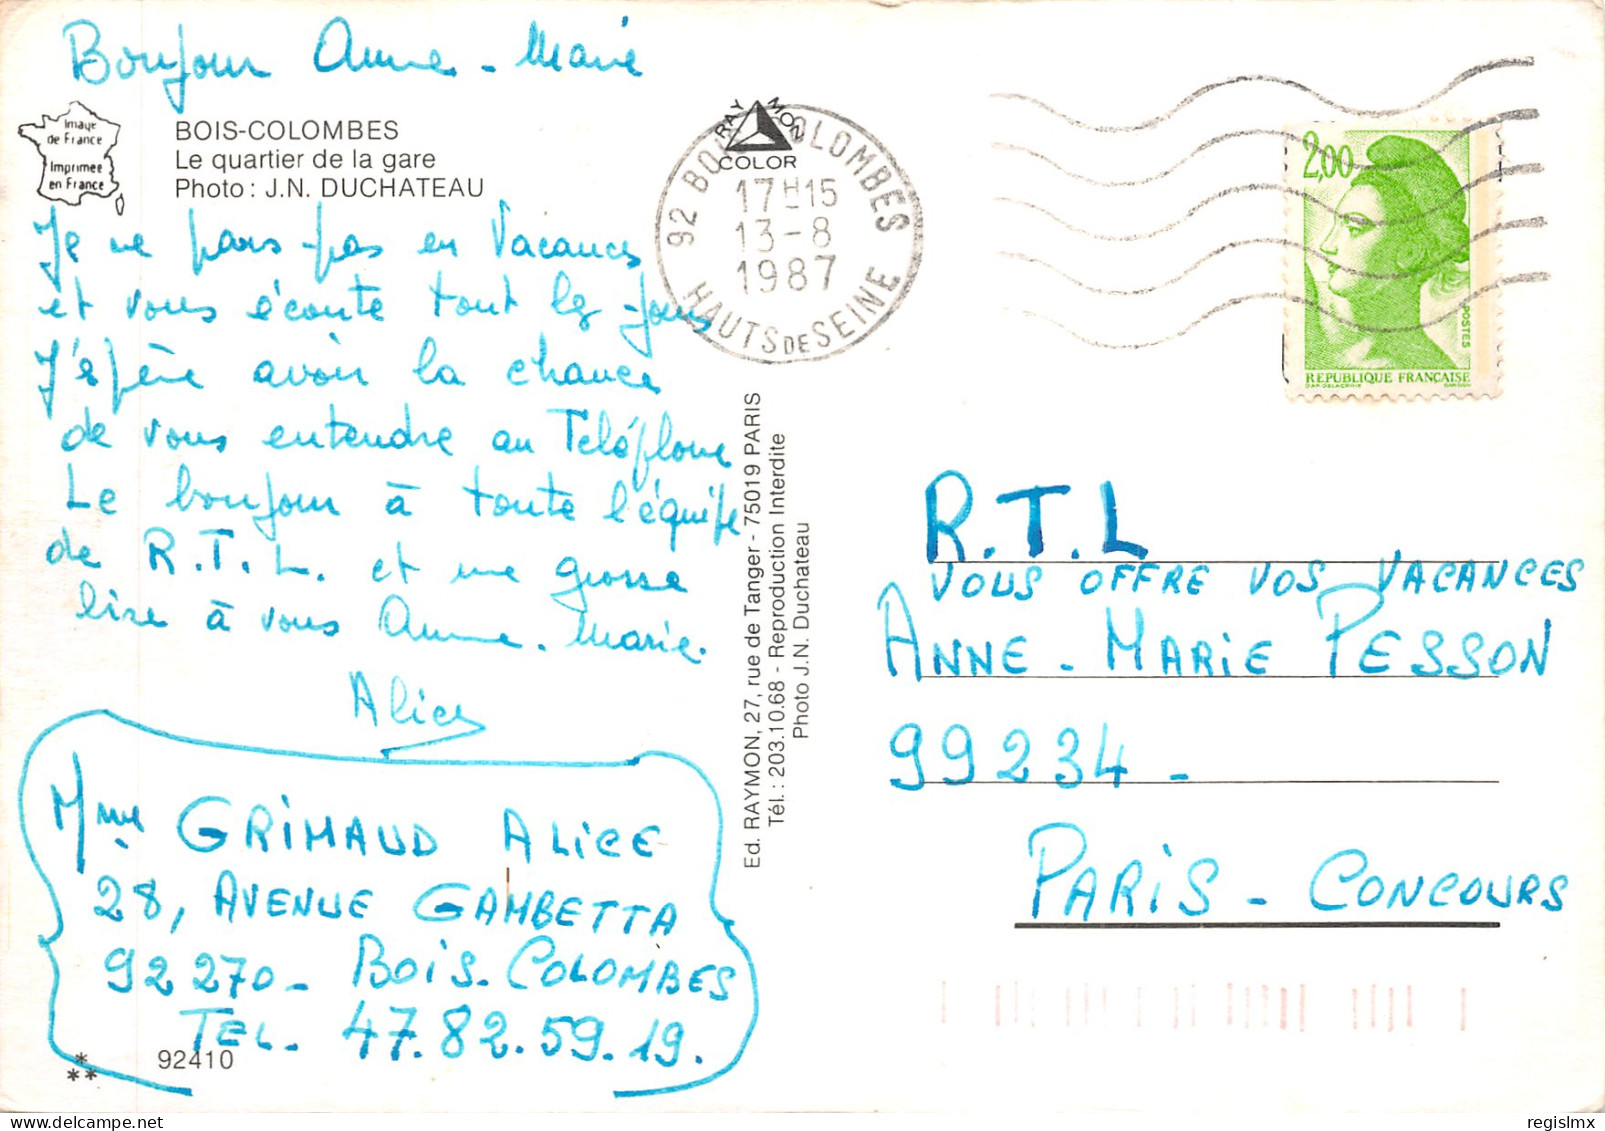 Bonjour Anne-Marie
Image
de France
Imprimée
en France
BOIS-COLOMBES
Le quartier de la gare
Photo : J.N. DUCHATEAU
Je ne pars pas en Vacances
et vous écoute tout les jours
J'espère avoir la chance
de vous entendre au Téléphone
Le bonjour à toute l'équipe
de R.T.L. et une grosse
bise à vous Anne-Marie.
Alice
Mme GRIMAUD ALICE
28, AVENUE GAMBETTA
92270 - BOIS-COLOMBES
TEL. 47.82.59.19.
92410
RAYMON
COLOR
92 BOIS COLOMBES
17H15
13-8
1987
HAUTS DE SEINE
Ed. RAYMON, 27, rue de Tanger - 75019 PARIS
Tél. : 203.10.68 - Reproduction Interdite
Photo J.N. Duchateau
2,00
POSTES
REPUBLIQUE FRANÇAISE
R.T.L
VOUS OFFRE VOS VACANCES
ANNE-MARIE PESSON
99234 -
PARIS - CONCOURS
regislmx